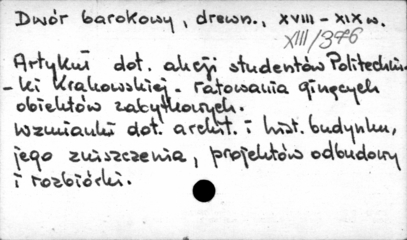 Dwór barokowy, drewn., XVIII - XIX w.
XIII/376
Artykuł dot. akcji studentów Politechni-
-ki Krakowskiej - ratowania ginących
obiektów zabytkowych.
Wzmianki dot. archit. i hist. budynku,
jego zniszczenia, projektów odbudowy
i rozbiórki.